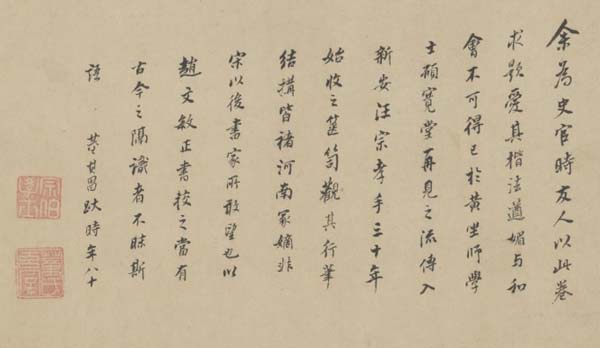 余為史官時友人以此卷
求題愛其楷法遒媚与和
會不可得已於黄坐師學
士碩寬堂再見之流傳入
新安汪宗孝手三十年
始收之篋笥觀其行筆
結搆皆褚河南冢嫡非
宋以後書家所敢望也以
趙文敏正書校之當有
古今之隔識者不昧斯
語 董其昌跋時年八十
宗伯學士